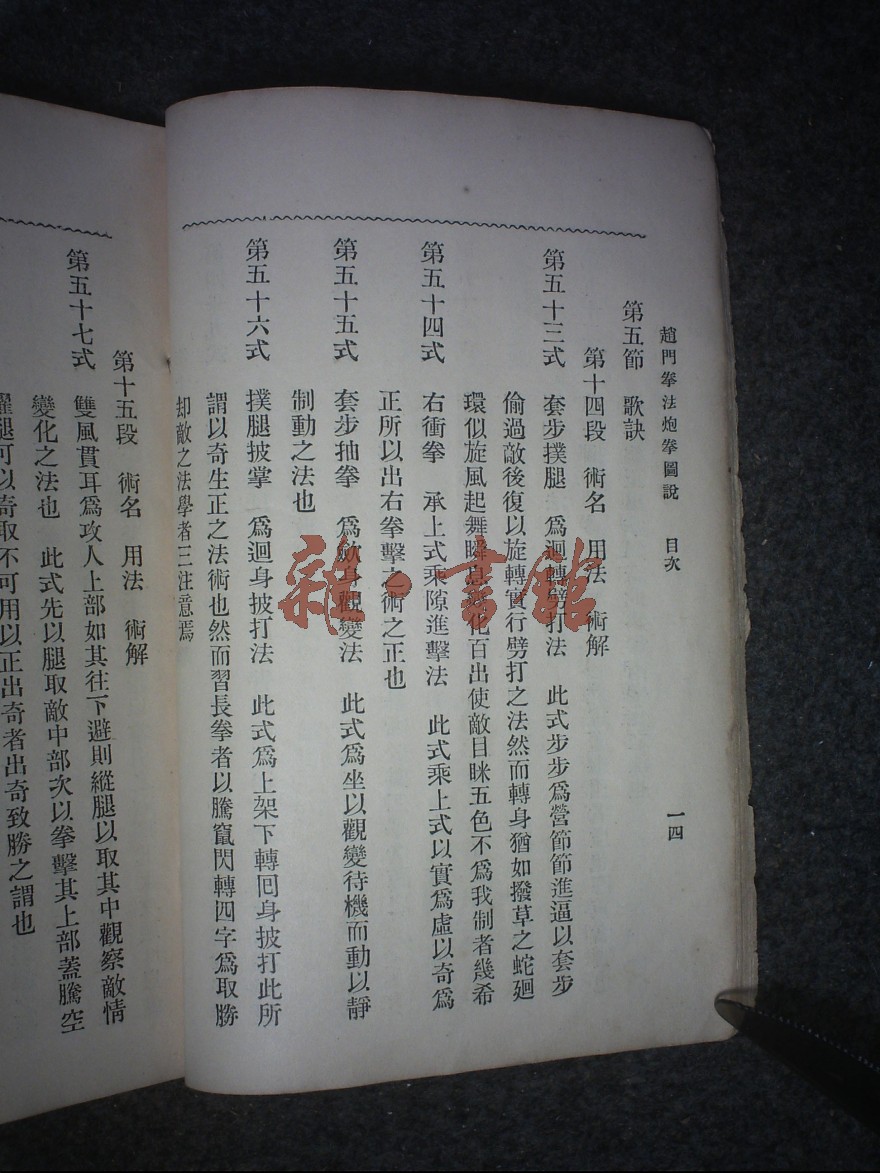 趙門拳法炮拳圖說　目次　一四
第五節　歌訣
第十四段　術名　用法　術解
第五十三式　套步撲腿　為迴轉劈打法　此式步步為營節節進逼以套步
偷過敵後復以旋轉實行劈打之法然而轉身猶如撥草之蛇廻
環似旋風起舞瞬息變化百出使敵目眯五色不為我制者幾希
第五十四式　右衝拳　承上式乘隙進擊法　此式乘上式以實為虛以奇為
正所以出右拳擊之術之正也
第五十五式　套步抽拳　為歛身觀變法　此式為坐以觀變待機而動以靜
制動之法也
第五十六式　撲腿披掌　為迴身披打法　此式為上架下轉囘身披打此所
謂以奇生正之法術也然而習長拳者以騰竄閃轉四字為取勝
却敵之法學者三注意焉
第十五段　術名　用法　術解
第五十七式　雙風貫耳為攻人上部如其往下避則縱腿以取其中觀察敵情
變化之法也　此式先以腿取敵中部次以拳擊其上部蓋騰空
腿可以奇取不可用以正出奇者出奇致勝之謂也
雜·書館